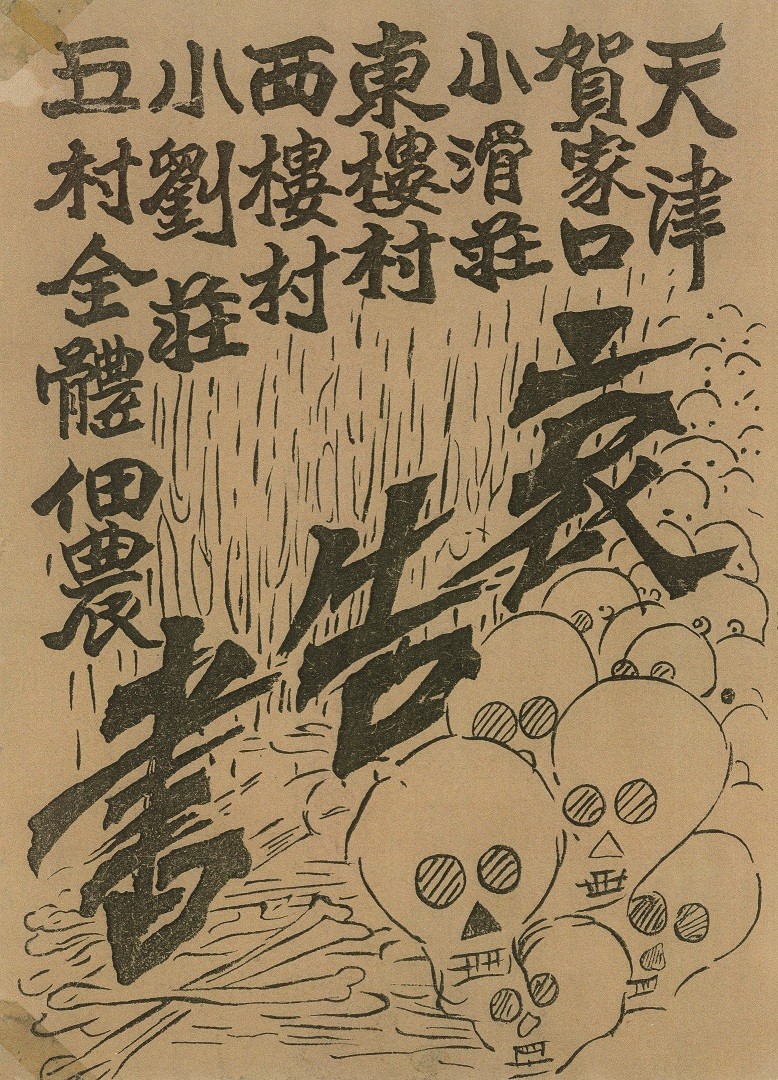 天津
賀家口
小滑莊
東樓村
西樓村
小劉莊
五村全體佃農
哀告書